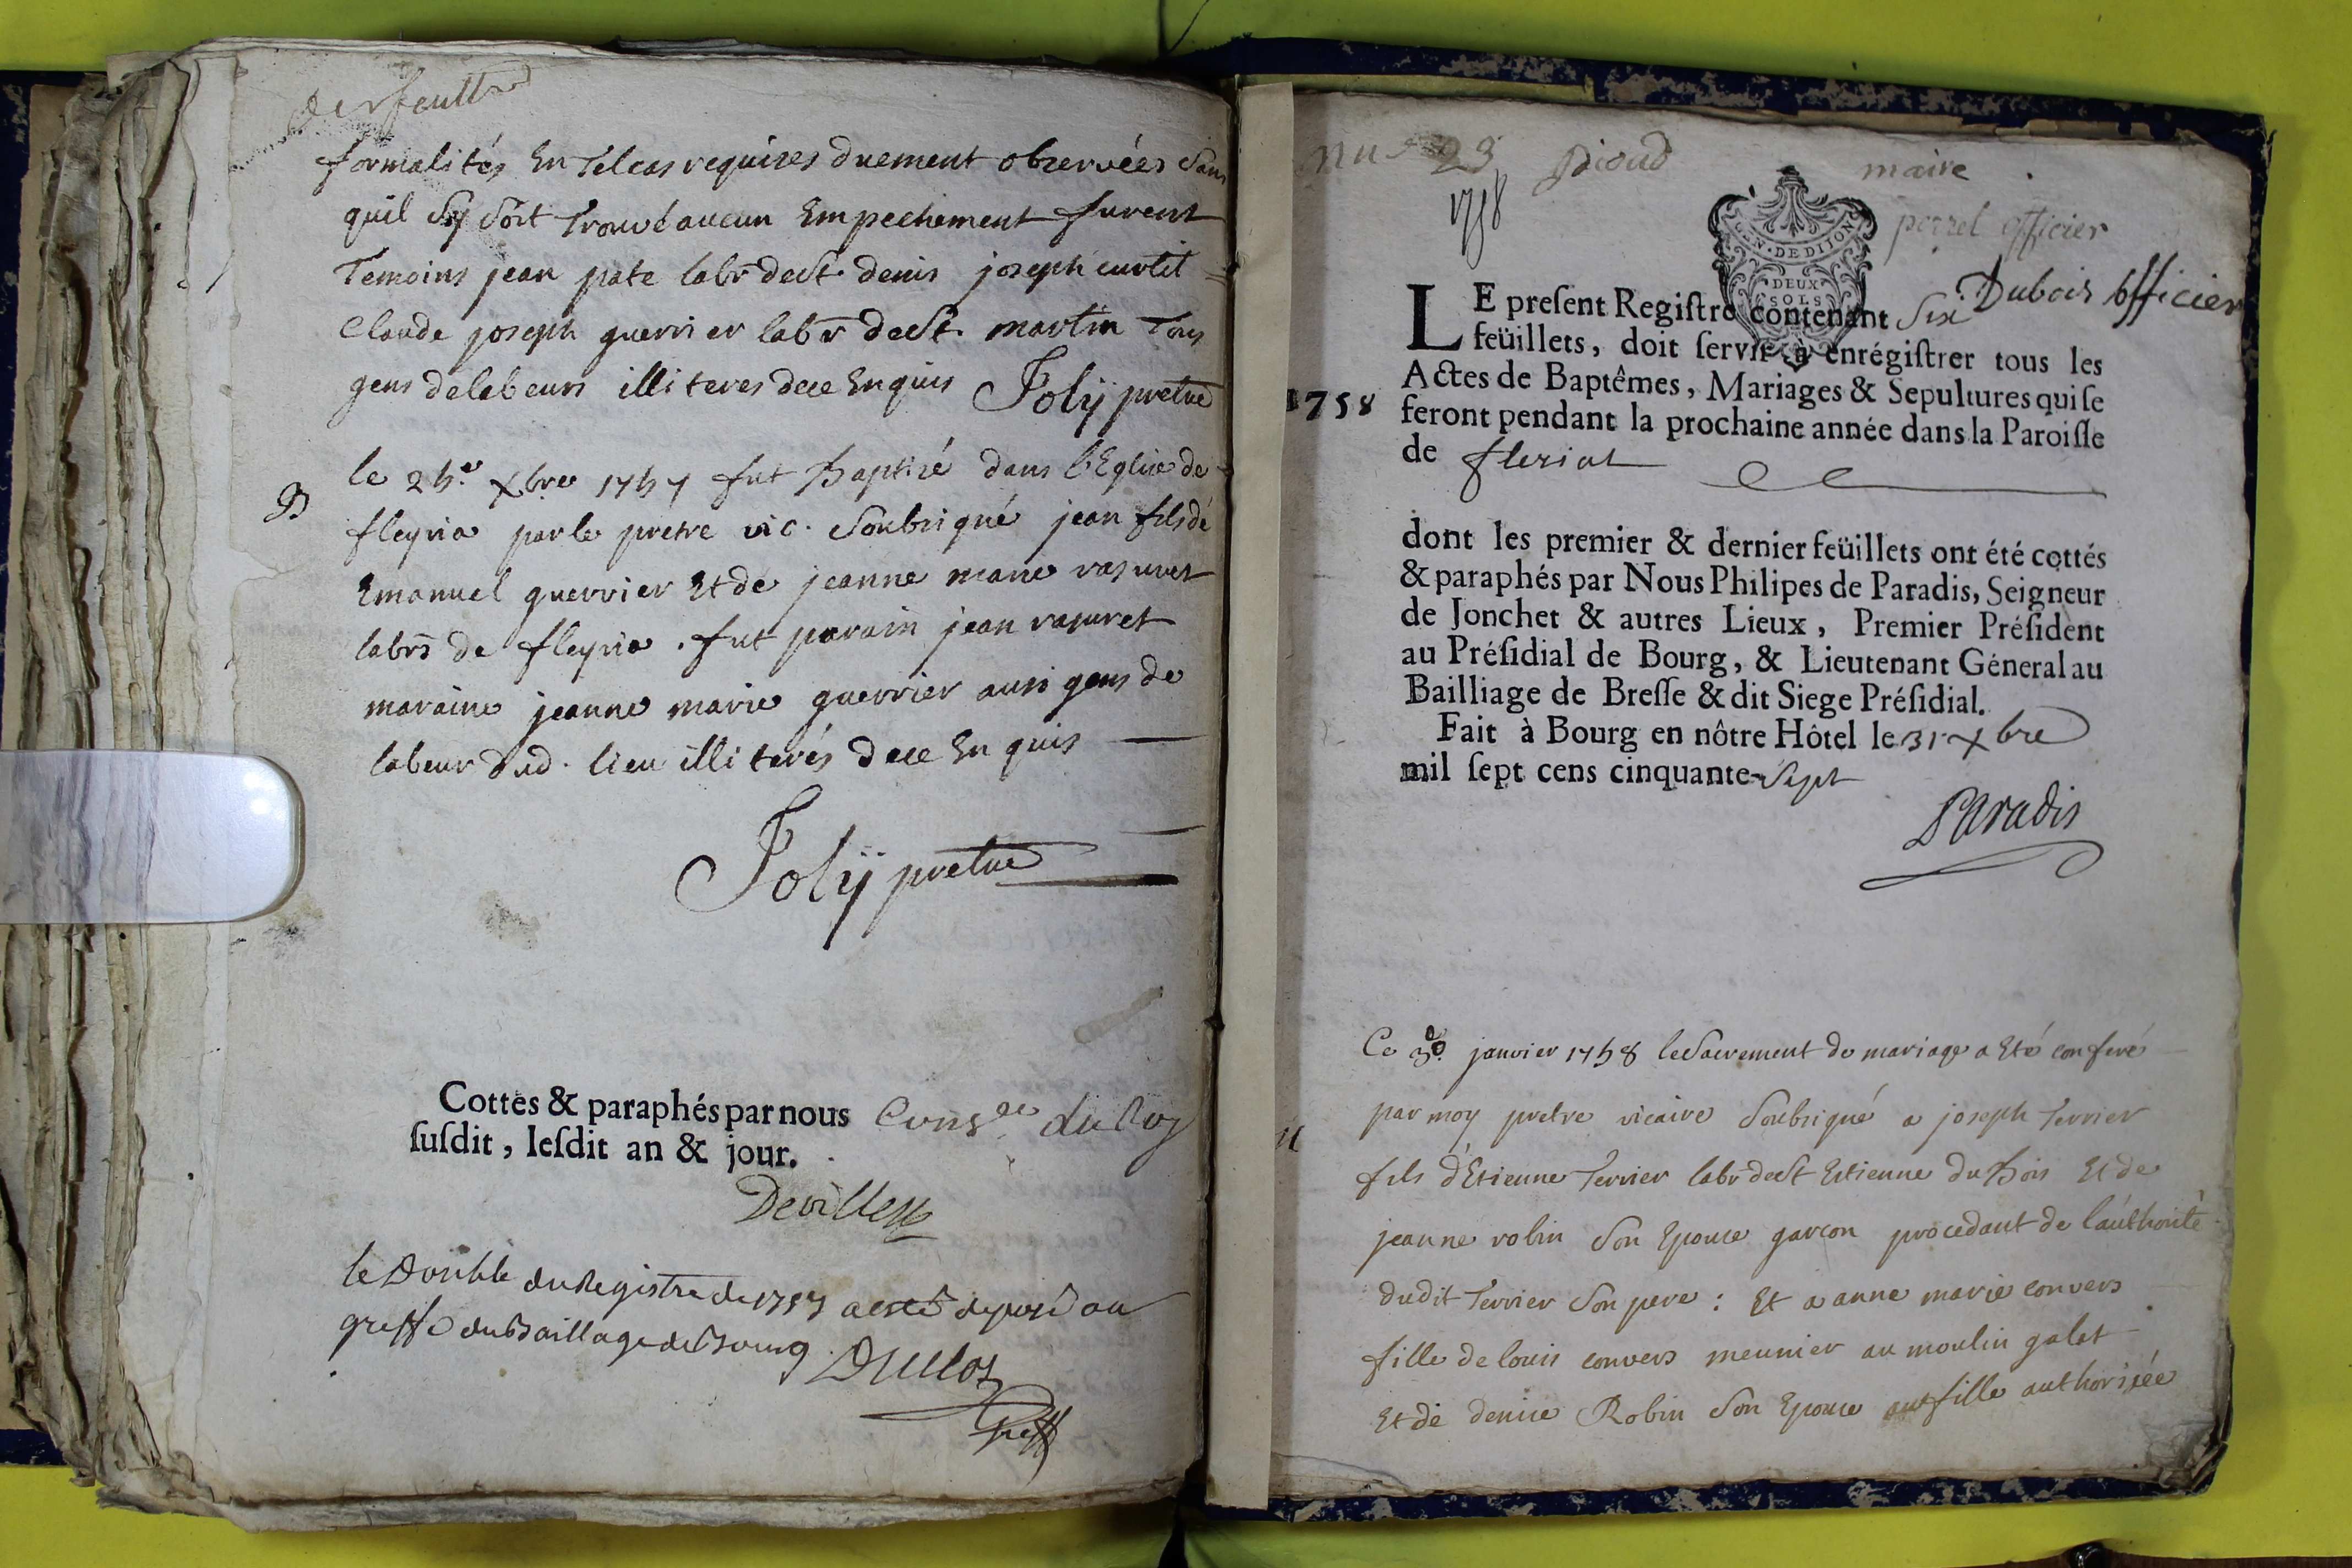 der feuillet
formalités En Telcas requises duement observées Sans
quil Sy Soit Trouvé aucun Empechement furent
Temoins jean pate labr dest. denis joseph curtil
Claude joseph guerrier labr dest. martin Tous
gens delabeurs illiteres dece Enquis Joly pretre
B
le 25.e xbre 1757 fut Baptisé dans l'Eglise de
fleyria parle pretre vic. Soubsigné jean fils de
Emanuel guerrier Et de jeanne marie rasuret
labrs de fleyria . fut parain jean rasuret
maraine jeanne marie guerrier aussi gens de
labeur dud. lieu illiterés dece En quis
Joly pretre
Cottes & paraphés par nous Cons.er du Roy
susdit, lesdit an & jour.
le Double du Registre de 1757 a esté deposé au
greffe du Baillage de Bourg
Greff
23 pioud maire
1758
perrel officier
Dubois officier
GEN. DE DIJON
DEUX
SOLS
LE present Registre contenant Six
feüillets, doit servir à enrégistrer tous les
Actes de Baptêmes, Mariages & Sepultures qui se
1758
feront pendant la prochaine année dans la Paroisse
de fleriat
dont les premier & dernier feüillets ont été cottés
& paraphés par Nous Philipes de Paradis, Seigneur
de Jonchet & autres Lieux, Premier Président
au Présidial de Bourg, & Lieutenant Géneral au
Bailliage de Bresse & dit Siege Présidial.
Fait à Bourg en nôtre Hôtel le 31 xbre
mil sept cens cinquante-Sept
Paradis
Ce janvier 1758 leSacrement de mariage a Eté conferé
par moy pretre vicaire Soubsigné a joseph Terrier
M
fils d'Etienne Terrier labr dest Etienne du Bois Et de
jeanne robin Son Epouse garcon procedant de l'authorité
dudit Terrier Son pere : Et a anne marie convers
fille de louis convers meunier au moulin galet
Et de denise Robin Son Epouse fille authorisée